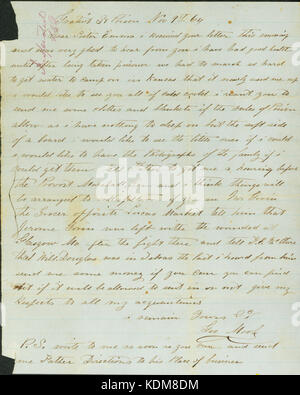 Gratiot St Prison Nov 9th 64
Dear Sister Emma i received your letter this evening
and was very glad to hear from you i have had good health
until i was taken prisoner we had to march so hard
to get water to camp on in Kansas that it nearly used me up
i would like to see you all if i could i want you to
send me some clothes and blankets if the rules of Prison
allow as i have nothing to sleep on but the soft side
of a board i would like to see the little ones if i could
i would like to have the Photographs of the family if i
could get them to get me a hearing before
the Provost Marshall and i think things will
be arranged to if you see
the Grocer opposite Market tell him that
Jerome was left with the wounded at
Glasgow Mo after the fight there and tell
that Will Douglass was in the last i heard from him
send me some money if you can you can
it if it will be allowed to not give my
Respects to all my acquaintances
i remain Yours
P.S. write to me as soon as you can and send
me Father Directions to his Place of business
alamy
Image ID: KDM8DM
www.alamy.com